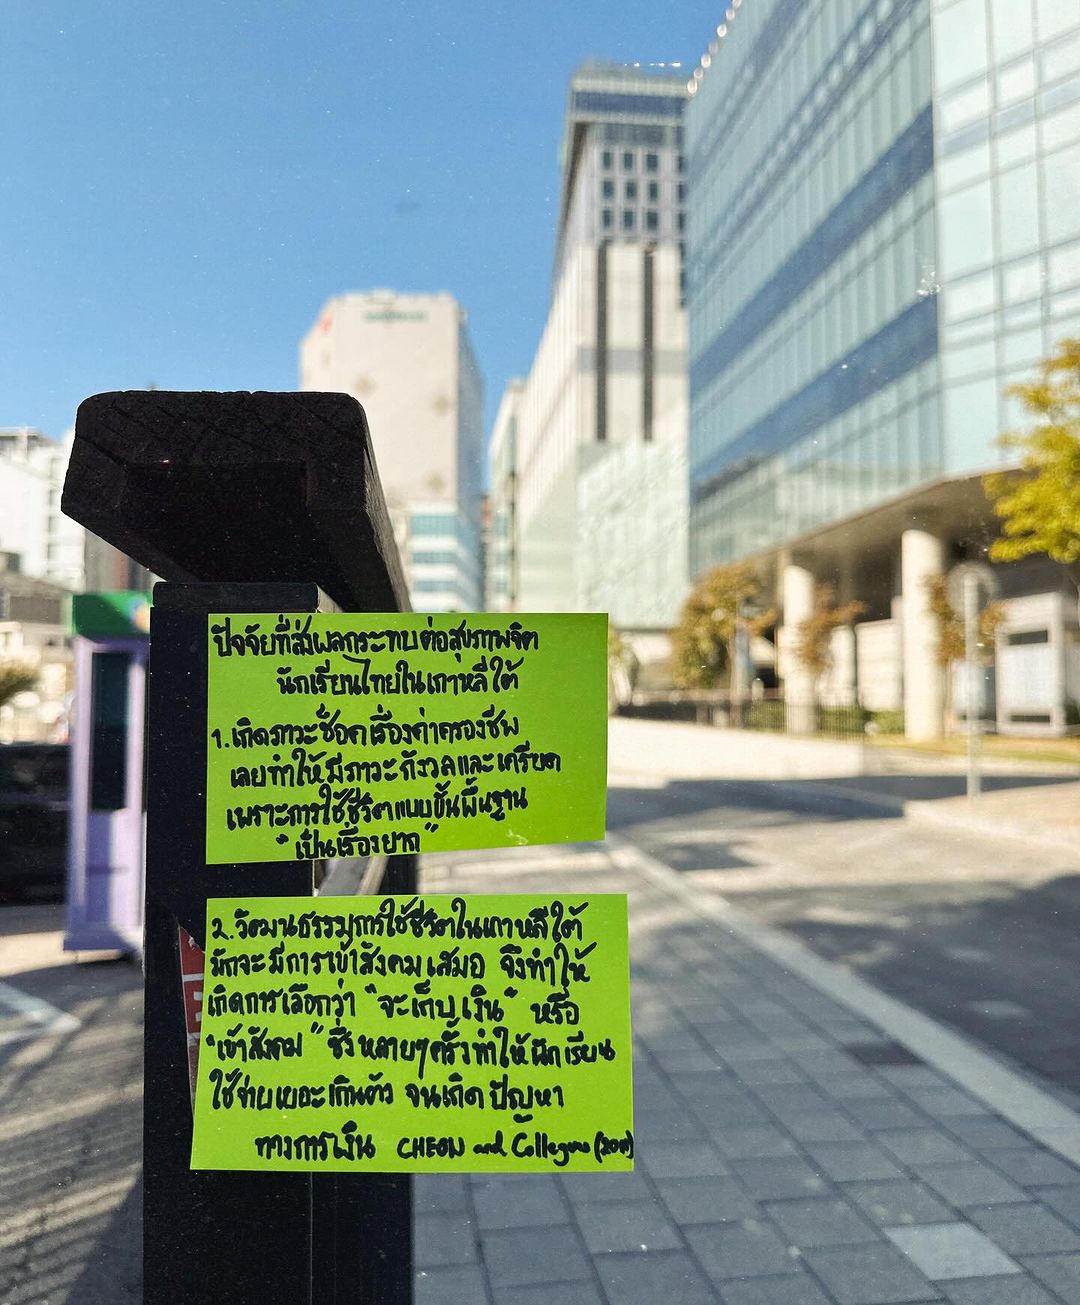 ปัจจัยที่ส่งผลกระทบต่อสุขภาพจิต
นักเรียนไทยในเกาหลีใต้
1.เกิดภาวะช็อคเรื่องค่าครองชีพ
เลยทำให้มีภาวะกังวลและเครียด
เพราะการใช้ชีวิตแบบขั้นพื้นฐาน
"เป็นเรื่องยาก"
2.วัฒนธรรมการใช้ชีวิตในเกาหลีใต้
มักจะมีการเข้าสังคมเสมอ จึงทำให้
เกิดการเลือกว่า "จะเก็บเงิน" หรือ
"เข้าสังคม" ซึ่งหลายๆครั้งทำให้นักเรียน
ใช้จ่ายเยอะเกินตัว จนเกิดปัญหา
ทางการเงิน CHEON and